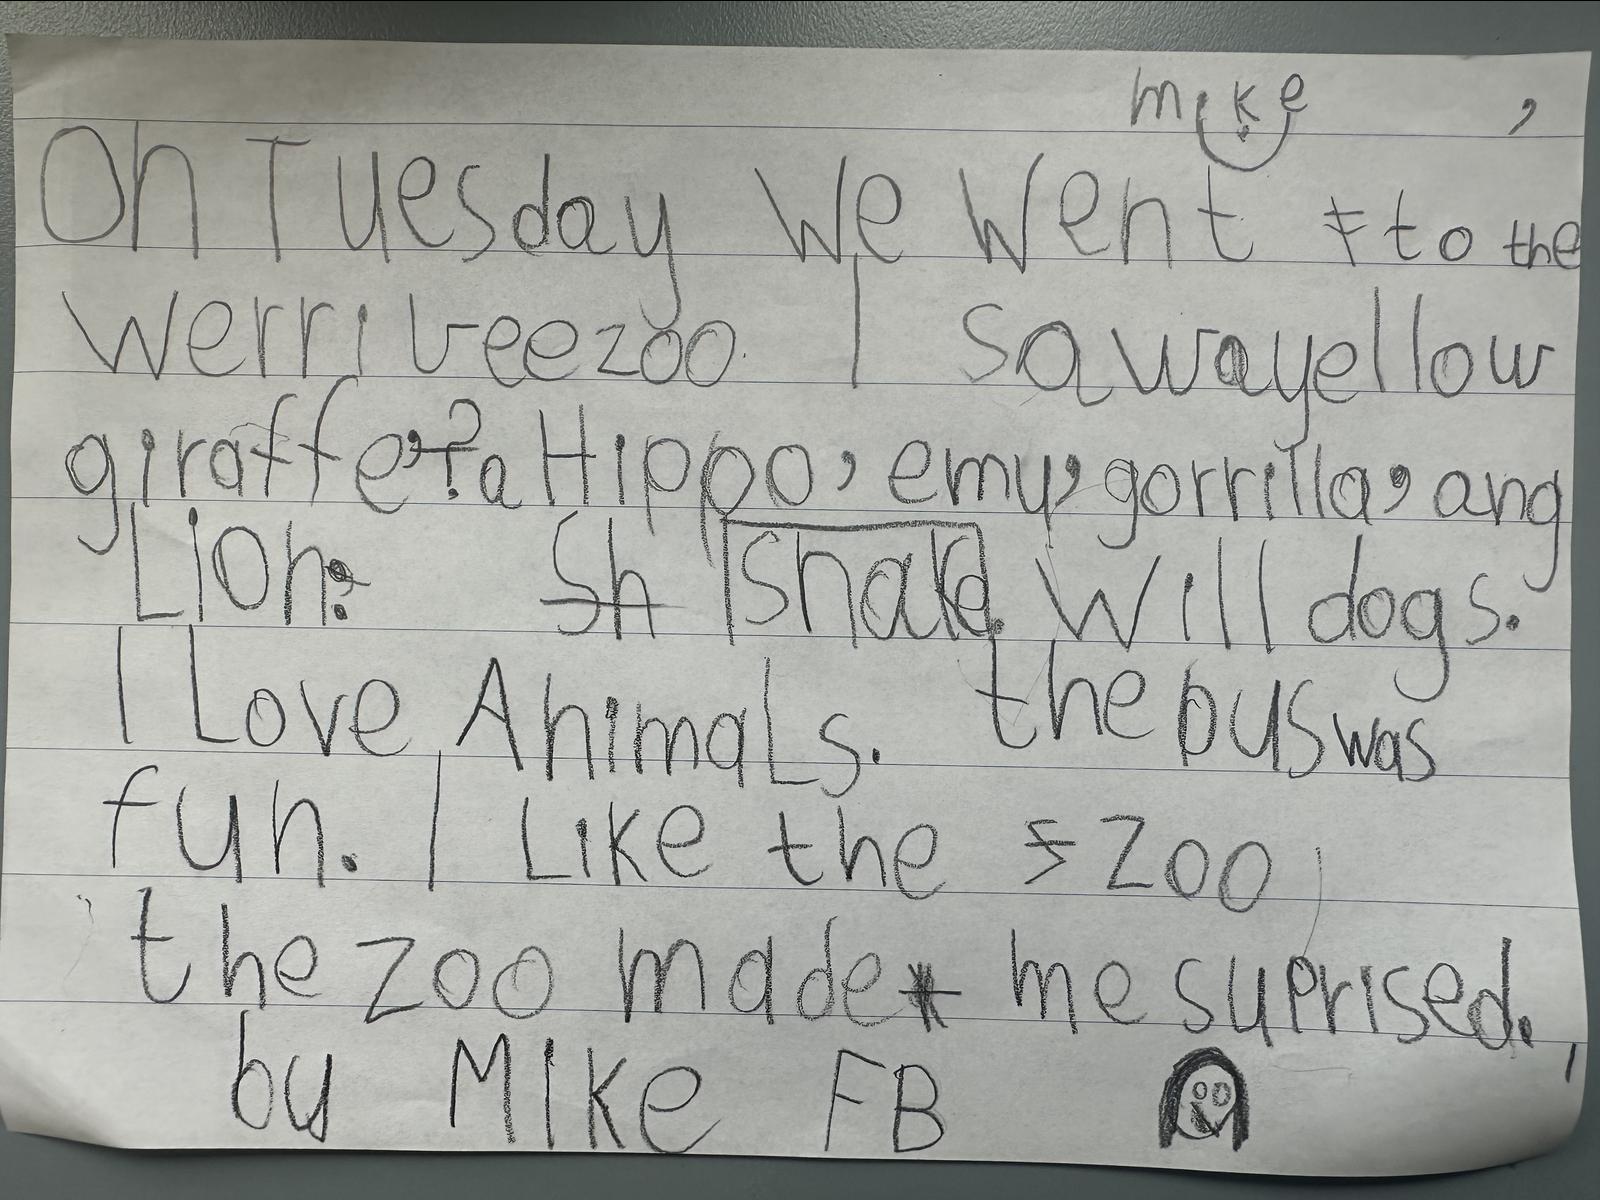 mike
On Tuesday We Went to the
werribeezoo. I saw a yellow
giraffe, a Hippo, emu, gorrilla, and
Lion. snake. Will dogs.
I Love AnimaLs. the bus was
fun. I Like the Zoo
the zoo made me suprised.
by Mike FB